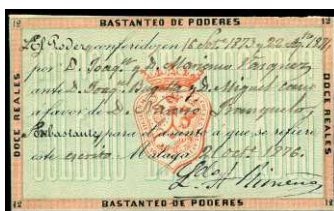 12 BASTANTEO DE PODERES 12
DOCE REALES
El Poder conferido en 16 Sete 1873 y 22 Ag
por D. Joaqn y D. Mariano Vazquez
ante D. Joaq D. Miguel Cano
a favor de D.
Es bastante para el asunto a que se refiere
este escrito Malaga Octe 1876.
Ldo A Ximenez
DOCE REALES
12 BASTANTEO DE PODERES 12